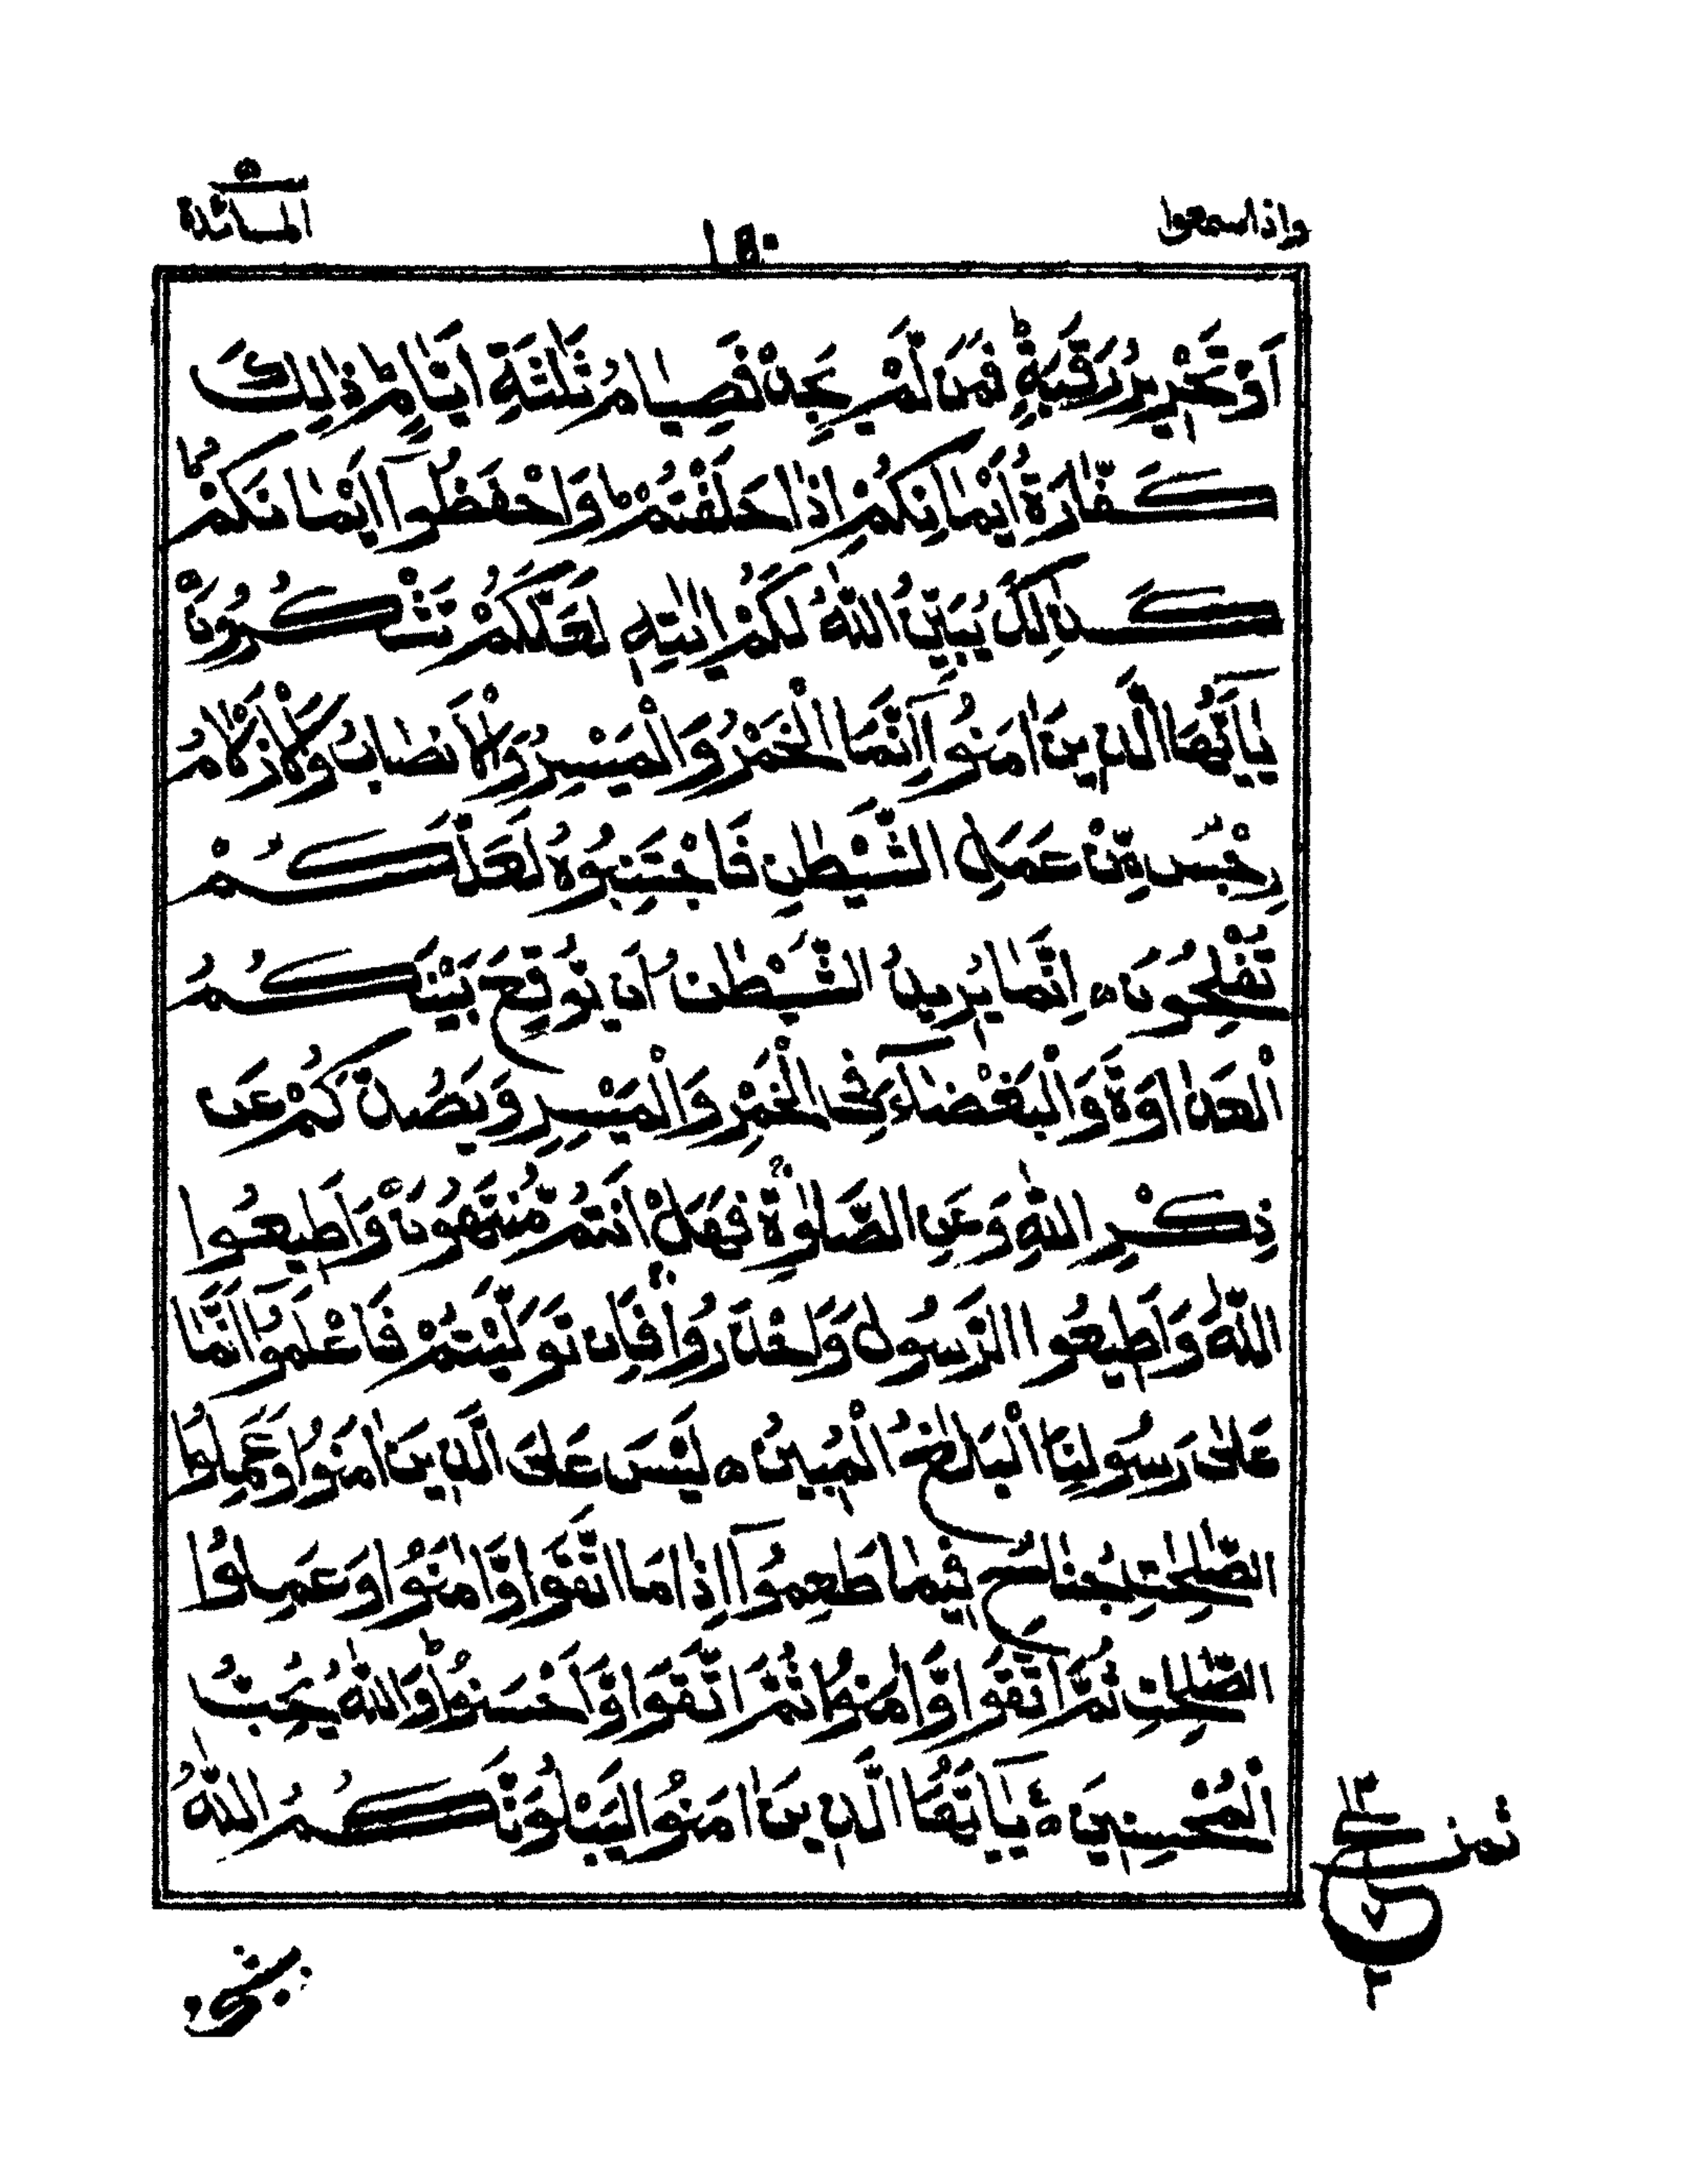 واذاسمعوا ١٥٠ المائدة ٥
اَوْ تَحْرِيْرُ رَقَبَةٍ ؕ فَمَنْ لَّمْ يَجِدْ فَصِيَامُ ثَلٰثَةِ اَيَّامٍ ؕ ذٰلِكَ
كَفَّارَةُ اَيْمَانِكُمْ اِذَا حَلَفْتُمْ ؕ وَاحْفَظُوْٓا اَيْمَانَكُمْ ؕ
كَذٰلِكَ يُبَيِّنُ اللّٰهُ لَكُمْ اٰيٰتِهٖ لَعَلَّكُمْ تَشْكُرُوْنَ ۝
يٰٓاَيُّهَا الَّذِيْنَ اٰمَنُوْٓا اِنَّمَا الْخَمْرُ وَالْمَيْسِرُ وَالْاَنْصَابُ وَالْاَزْلَامُ
رِجْسٌ مِّنْ عَمَلِ الشَّيْطٰنِ فَاجْتَنِبُوْهُ لَعَلَّكُمْ
تُفْلِحُوْنَ ۝ اِنَّمَا يُرِيْدُ الشَّيْطٰنُ اَنْ يُّوْقِعَ بَيْنَكُمُ
الْعَدَاوَةَ وَالْبَغْضَآءَ فِى الْخَمْرِ وَالْمَيْسِرِ وَيَصُدَّكُمْ عَنْ
ذِكْرِ اللّٰهِ وَعَنِ الصَّلٰوةِ ۚ فَهَلْ اَنْتُمْ مُّنْتَهُوْنَ ۝ وَاَطِيْعُوا
اللّٰهَ وَاَطِيْعُوا الرَّسُوْلَ وَاحْذَرُوْا ۚ فَاِنْ تَوَلَّيْتُمْ فَاعْلَمُوْٓا اَنَّمَا
عَلٰى رَسُوْلِنَا الْبَلٰغُ الْمُبِيْنُ ۝ لَيْسَ عَلَى الَّذِيْنَ اٰمَنُوْا وَعَمِلُوا
الصّٰلِحٰتِ جُنَاحٌ فِيْمَا طَعِمُوْٓا اِذَا مَا اتَّقَوْا وَّاٰمَنُوْا وَعَمِلُوا
الصّٰلِحٰتِ ثُمَّ اتَّقَوْا وَّاٰمَنُوْا ثُمَّ اتَّقَوْا وَّاَحْسَنُوْا ؕ وَاللّٰهُ يُحِبُّ
الْمُحْسِنِيْنَ ۝ يٰٓاَيُّهَا الَّذِيْنَ اٰمَنُوْا لَيَبْلُوَنَّكُمُ اللّٰهُ
ثمن ١٢ ع ٧ ٢
بشئ